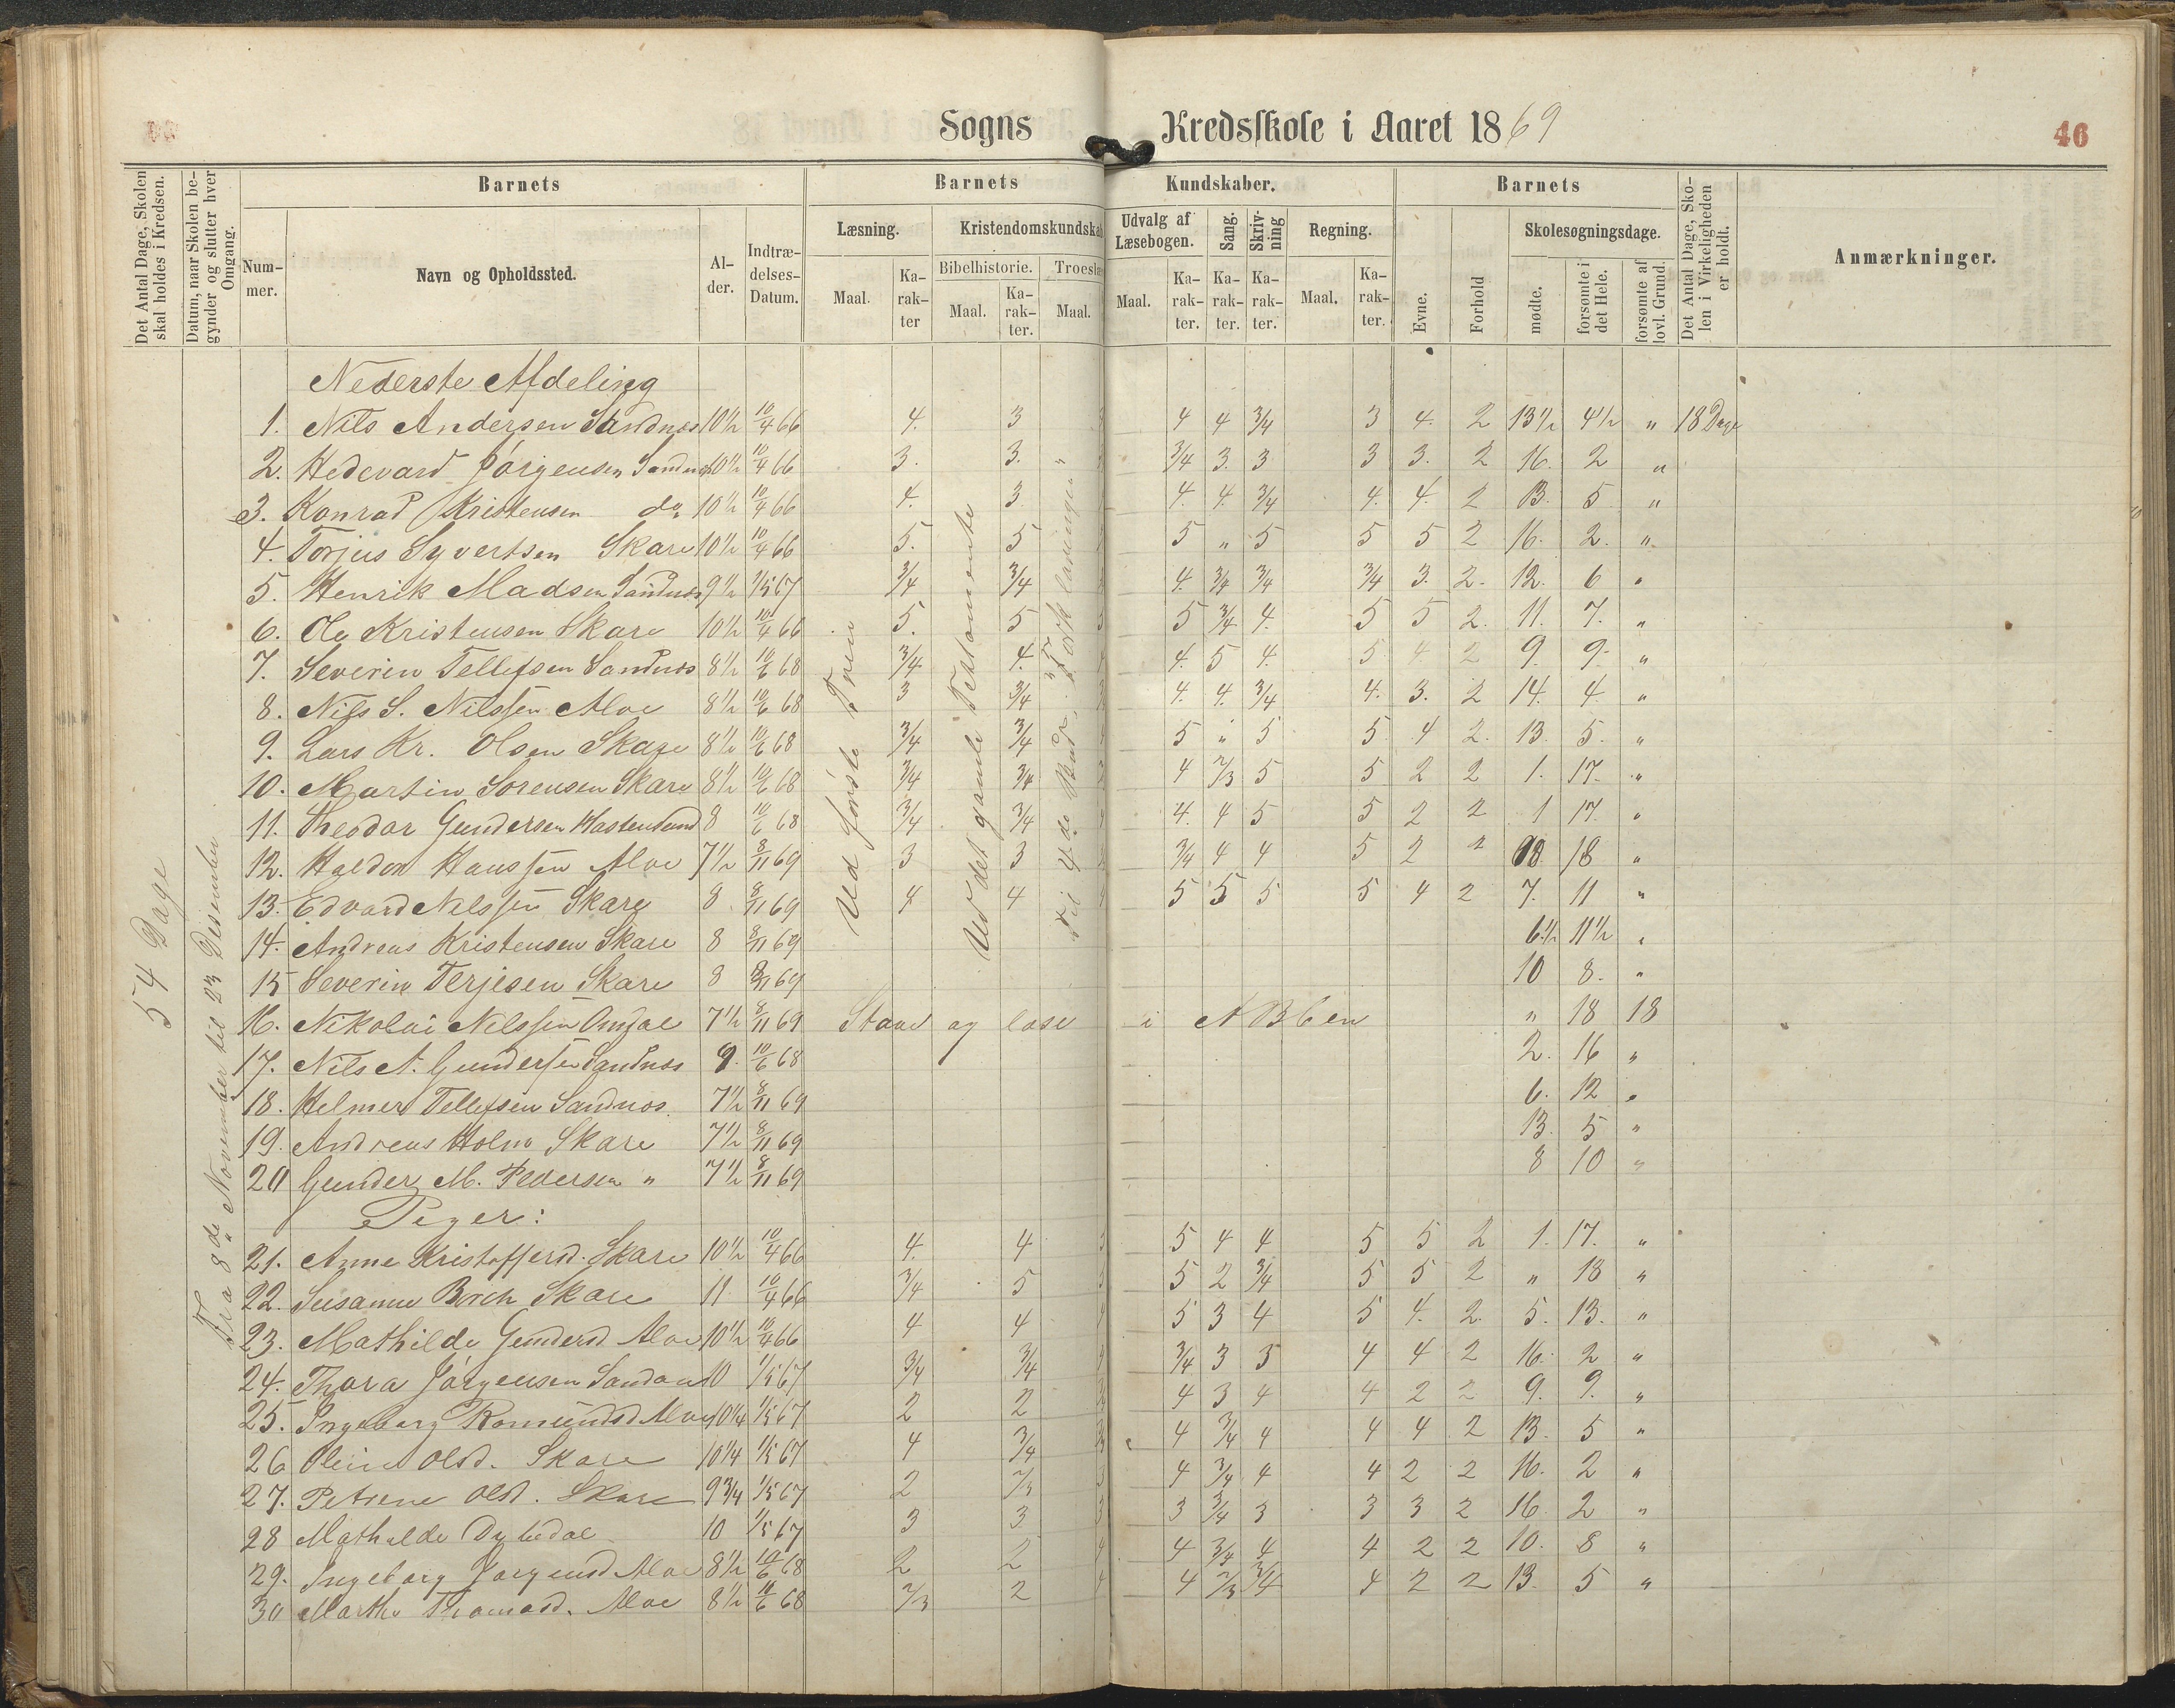 Sogns Kredsskole i Aaret 1869
46
Det Antal Dage, Skolen skal holdes i Kredsen.
Datum, naar Skolen begynder og slutter hver Omgang.
Barnets
Nummer.
Navn og Opholdssted.
Alder.
Indtrædelses-Datum.
Barnets Kundskaber.
Læsning.
Maal.
Karakter
Kristendomskundskab
Bibelhistorie.
Maal.
Karakter.
Troeslær
Maal.
Udvalg af Læsebogen.
Maal.
Karakter.
Sang.
Karakter.
Skrivning
Karakter.
Regning.
Maal.
Karakter.
Barnets
Evne.
Forhold
Skolesøgningsdage.
mødte.
forsømte i det Hele.
forsømte af lovl. Grund.
Det Antal Dage, Skolen i Virkeligheden er holdt.
Anmærkninger.
54 Dage
Fra 8de November til 23 Desember
Ved første Trin
Ved det gamle Testamente
Til 4de Bud.
Nederste Afdeling
1. Nils Andersen Sandnes 10½ 10/4 66 4. 3 4 4 3/4 3 4. 2 13½ 4½ " 18 Dage
2. Hedevard Jörgensen Sandnes 10½ 10/4 66 3. 3. 3/4 3. 3 3 3. 2 16. 2 "
3. Konrad Kristensen do 10½ 10/4 66 4. 3 4. 4. 3/4 4. 4. 2 13. 5 "
4. Torjus Syvertsen Skare 10½ 10/4 66 5. 5 5 " 5 5 5 2 16. 2. "
5. Henrik Madsen Sandnes 9½ 1/5 67 3/4 3/4 4. 3/4 3/4 3/4 3. 2. 12. 6 "
6. Ole Kristensen Skare 10½ 10/4 66 5. 5 5 3/4 4. 5 5 2. 11. 7. "
7. Severin Tellefsen Sandnes 8½ 10/6 68 3/4 4. 4. 5 4. 5 4 2 9. 9. "
8. Nils S. Nilssen Aloe 8½ 10/6 68 3 3/4 4. 4. 3/4 4. 3. 2 14. 4. "
9. Lars Kr. Olsen Skare 8½ 10/6 68 3/4 3/4 5 " 5 5 4 2. 13. 5. "
10. Martin Sorensen Skare 8½ 10/6 68 3/4 3/4 4 2/3 5 5 2 2 1. 17. "
11. Theodor Gundersen Hastensund 8 10/6 68 3/4 3/4 4. 4 5 5 2 2 1 17. "
12. Haldor Hanssen Aloe 7½ 8/11 69 3 3 3/4 4 4 5 2 2 18 "
13. Edvard Nelssen Skare 8 8/11 69 4 4 5 5 5 5 4 2 7. 11 "
14. Andreas Kristensen Skare 8 8/11 69 6½ 11½ "
15 Severin Terjesen Skare 8 8/11 69 10 8. "
16. Nikolai Nelssen Omdal 7½ 8/11 69 Stave og læse i ABCen " 18 18
17. Nils A. Gundersen Sandnes 9. 10/6 68 2. 16 "
18. Helmer Tellefsen Sandnes 7½ 8/11 69 6. 12 "
19. Andreas Holm Skare 7½ 8/11 69 13. 5 "
20 Gunder M. Pedersen " 7½ 8/11 69 8 10 "
Piger:
21. Anne Kristoffersd. Skare 10½ 10/4 66 4. 4 5 4 4 5 5 2 1. 17. "
22. Susanne Borch Skare 11 10/4 66 3/4 5 5 2 3/4 5 5 2 " 18 "
23. Mathilde Gundersd Aloe 10½ 10/4 66 4 4 5 3 4 5 4. 2. 5. 13. "
24. Thora Jörgensen Sandnes 10 1/5 67 3/4 3/4 3/4 3 3 4 4 2 16. 2 "
25. Ingeborg Romundsd Aloe 10¼ 1/5 67 2 2 4 3 4 4 2 2 9. 9. "
26 Oline Olsd. Skare 10¼ 1/5 67 4 3/4 4 3/4 4 4 4 2 13. 5 "
27. Petrine Olsd. Skare 9¾ 1/5 67 2 2/3 4 3/4 4 4 2 2 16. 2 "
28 Mathilde Dybedal 10 1/5 67 3 3 3 3/4 3 3 3 2 16. 2 "
29. Ingeborg Jörgensd Aloe 8½ 10/6 68 2 2 4 3/4 4 4 2 2 10. 8 "
30 Marthe Thomasd. Aloe 8½ 10/6 68 2/3 2 4 2/3 3/4 4 2 2 13. 5 "